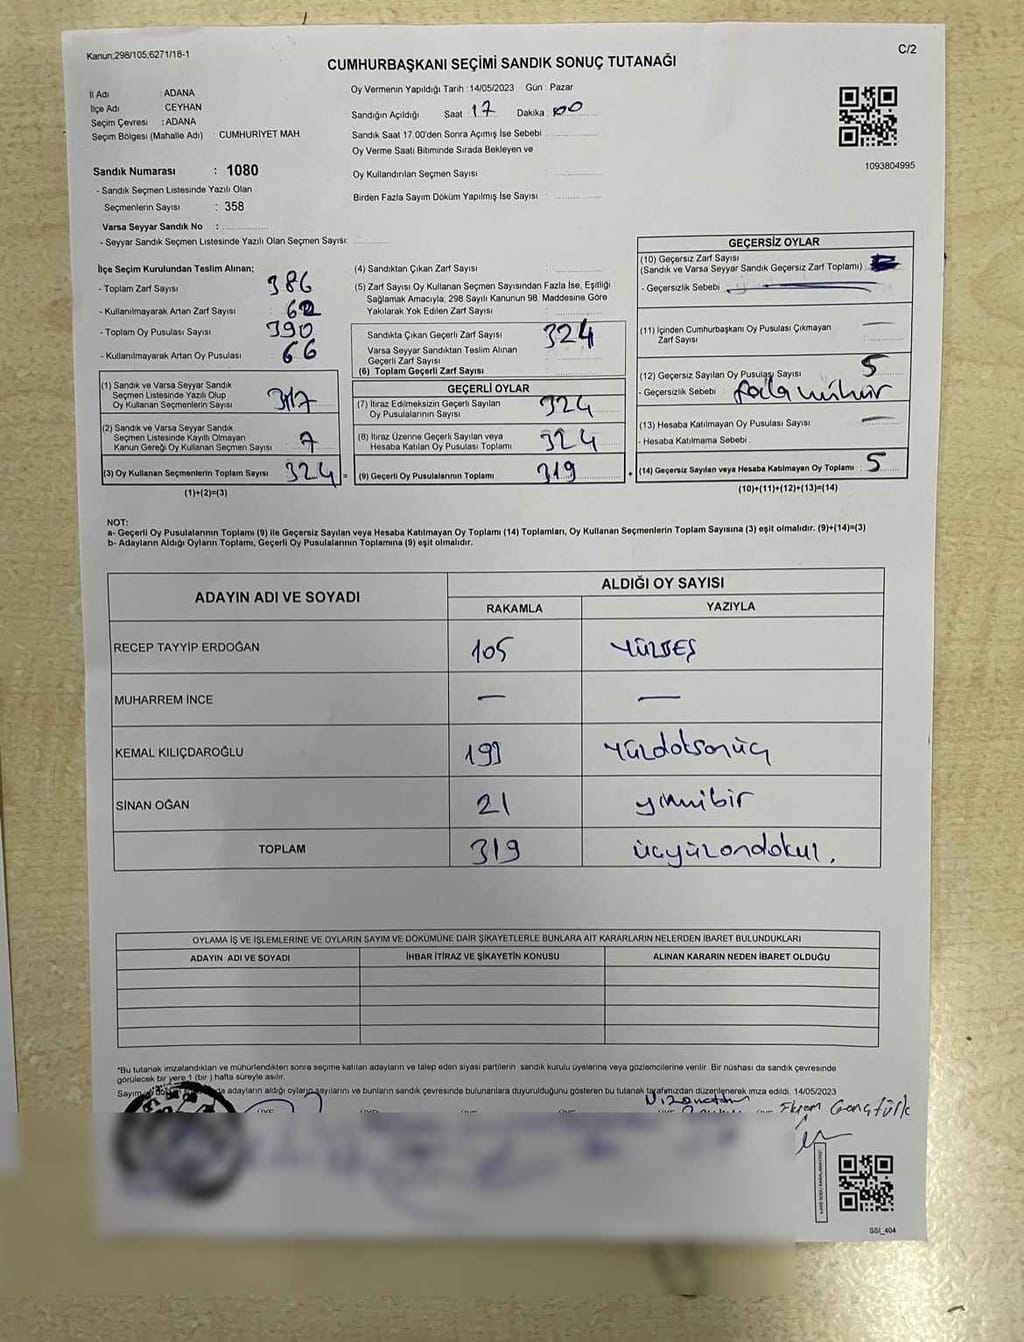 Kanun:298/105,6271/18-1
C/2
CUMHURBAŞKANI SEÇİMİ SANDIK SONUÇ TUTANAĞI
İl Adı : ADANA
İlçe Adı : CEYHAN
Seçim Çevresi : ADANA
Seçim Bölgesi (Mahalle Adı) : CUMHURİYET MAH.
Sandık Numarası : 1080
- Sandık Seçmen Listesinde Yazılı Olan
Seçmenlerin Sayısı : 358
Varsa Seyyar Sandık No :
- Seyyar Sandık Seçmen Listesinde Yazılı Olan Seçmen Sayısı:
Oy Vermenin Yapıldığı Tarih : 14/05/2023 Gün : Pazar
Sandığın Açıldığı Saat : 17 Dakika : 00
Sandık Saat 17.00'den Sonra Açımış İse Sebebi :
Oy Verme Saati Bitiminde Sırada Bekleyen ve
Oy Kullandırılan Seçmen Sayısı :
Birden Fazla Sayım Döküm Yapılmış İse Sayısı :
1093804995
İlçe Seçim Kurulundan Teslim Alınan;
- Toplam Zarf Sayısı 386
- Kullanılmayarak Artan Zarf Sayısı : 62
- Toplam Oy Pusulası Sayısı 390
- Kullanılmayarak Artan Oy Pusulası : 66
(1) Sandık ve Varsa Seyyar Sandık
Seçmen Listesinde Yazılı Olup
Oy Kullanan Seçmenlerin Sayısı 317
(2) Sandık ve Varsa Seyyar Sandık
Seçmen Listesinde Kayıtlı Olmayan
Kanun Gereği Oy Kullanan Seçmen Sayısı : 7
(3) Oy Kullanan Seçmenlerin Toplam Sayısı 324 =
(1)+(2)=(3)
(4) Sandıktan Çıkan Zarf Sayısı :
(5) Zarf Sayısı Oy Kullanan Seçmen Sayısından Fazla İse, Eşitliği
Sağlamak Amacıyla; 298 Sayılı Kanunun 98. Maddesine Göre
Yakılarak Yok Edilen Zarf Sayısı :
Sandıkta Çıkan Geçerli Zarf Sayısı 324
Varsa Seyyar Sandıktan Teslim Alınan
Geçerli Zarf Sayısı
(6) Toplam Geçerli Zarf Sayısı
GEÇERLİ OYLAR
(7) İtiraz Edilmeksizin Geçerli Sayılan
Oy Pusulalarının Sayısı 324
(8) İtiraz Üzerine Geçerli Sayılan veya
Hesaba Katılan Oy Pusulası Toplamı 324
(9) Geçerli Oy Pusulalarının Toplamı 319 +
GEÇERSİZ OYLAR
(10) Geçersiz Zarf Sayısı
(Sandık ve Varsa Seyyar Sandık Geçersiz Zarf Toplamı)
- Geçersizlik Sebebi :
(11) İçinden Cumhurbaşkanı Oy Pusulası Çıkmayan
Zarf Sayısı —
(12) Geçersiz Sayılan Oy Pusulası Sayısı 5
- Geçersizlik Sebebi : fazla mühür
(13) Hesaba Katılmayan Oy Pusulası Sayısı : —
- Hesaba Katılmama Sebebi :
(14) Geçersiz Sayılan veya Hesaba Katılmayan Oy Toplamı : 5
(10)+(11)+(12)+(13)=(14)
NOT:
a- Geçerli Oy Pusulalarının Toplamı (9) ile Geçersiz Sayılan veya Hesaba Katılmayan Oy Toplamı (14) Toplamları, Oy Kullanan Seçmenlerin Toplam Sayısına (3) eşit olmalıdır. (9)+(14)=(3)
b- Adayların Aldığı Oyların Toplamı, Geçerli Oy Pusulalarının Toplamına (9) eşit olmalıdır.
ADAYIN ADI VE SOYADI
ALDIĞI OY SAYISI
RAKAMLA YAZIYLA
RECEP TAYYİP ERDOĞAN 105 YÜZBEŞ
MUHARREM İNCE — —
KEMAL KILIÇDAROĞLU 193 Yüzdoksanüç
SİNAN OĞAN 21 yirmibir
TOPLAM 319 üçyüzondokuz.
OYLAMA İŞ VE İŞLEMLERİNE VE OYLARIN SAYIM VE DÖKÜMÜNE DAİR ŞİKAYETLERLE BUNLARA AİT KARARLARIN NELERDEN İBARET BULUNDUKLARI
ADAYIN ADI VE SOYADI İHBAR İTİRAZ VE ŞİKAYETİN KONUSU ALINAN KARARIN NEDEN İBARET OLDUĞU
*Bu tutanak imzalandıktan ve mühürlendikten sonra seçime katılan adayların ve talep eden siyasi partilerin sandık kurulu üyelerine veya gözlemcilerine verilir. Bir nüshası da sandık çevresinde
görülecek bir yere 1 (bir ) hafta süreyle asılır.
Sayım ve döküm adayların aldığı oyların sayılarını ve bunların sandık çevresinde bulunanlara duyurulduğunu gösteren bu tutanak tarafımızdan düzenlenerek imza edildi. 14/05/2023
Nizamettin
Ekrem Gençtürk
SSI_404